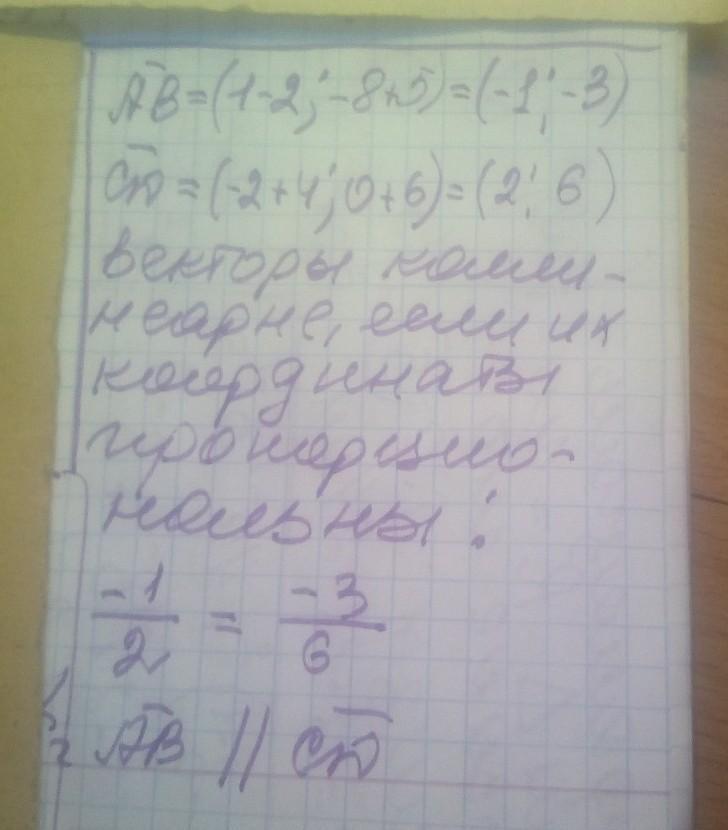 AB=(1-2;-8+5)=(-1;-3)
CD=(-2+4;0+6)=(2; 6)
векторы колли-
неарне, если их
координаты
пропорцио-
нальны:
-1/2 = -3/6
AB || CD